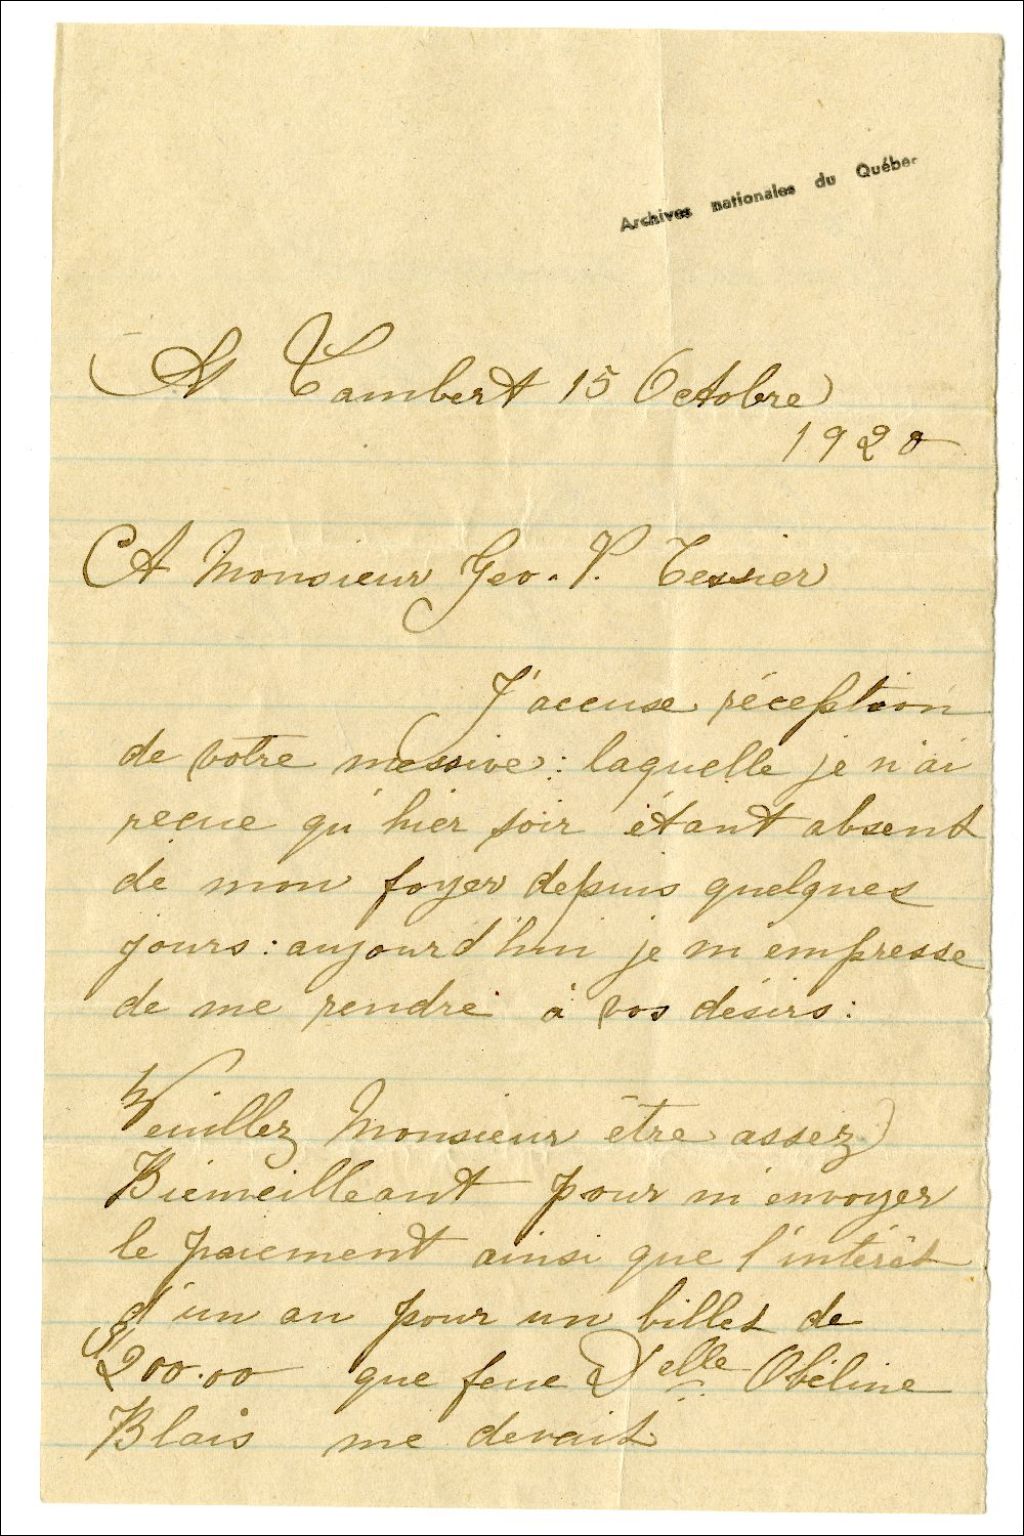 Archives nationales du Québec
St Lambert 15 Octobre
1920
A Monsieur Geo. V. Tessier
J'accuse réception
de votre messive : laquelle je n'ai
reçue qu'hier soir étant absent
de mon foyer depuis quelques
jours : aujourd'hui je m'empresse
de me rendre à vos désirs :
Veuillez Monsieur être assez
Bienveilleant pour m'envoyer
le paiement ainsi que l'intérêt
d'un an pour un billet de
$200.00 que feue Delle Obéline
Blais me devait